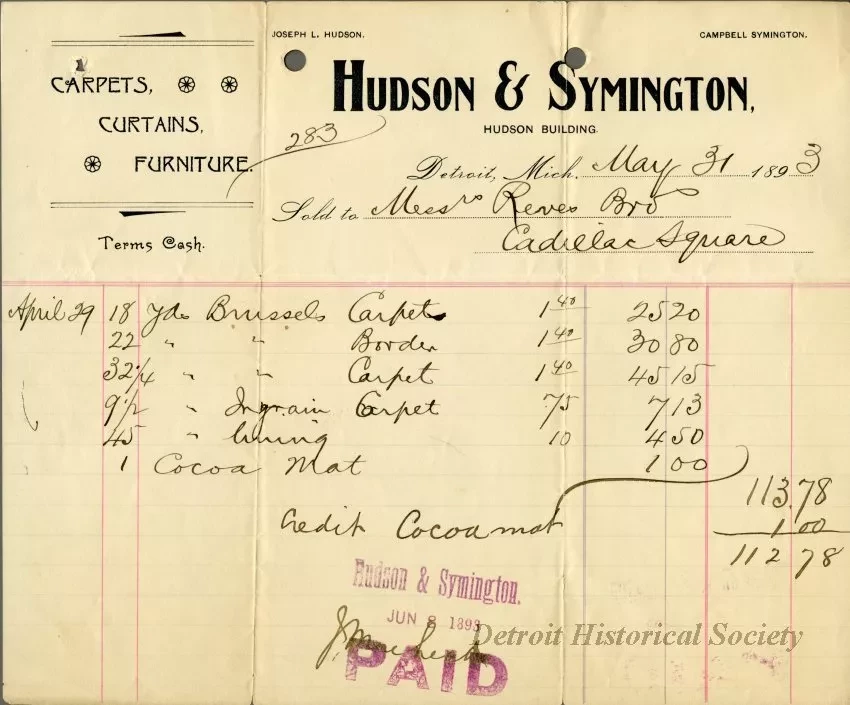 JOSEPH L. HUDSON.
CAMPBELL SYMINGTON.
CARPETS,
CURTAINS,
FURNITURE.
Terms Cash.
HUDSON & SYMINGTON,
HUDSON BUILDING.
283
Detroit, Mich. May 31 1893
Sold to Messrs Reves Bro
Cadillac Square
April 29 18 Yds Brussels Carpet 1 40 25 20
22 " " Border 1 40 30 80
32 1/4 " " Carpet 1 40 45 15
9 1/2 " Ingrain Carpet 75 7 13
45 " lining 10 4 50
1 Cocoa Mat 1 00
113.78
Credit Cocoa mat 1 00
112 78
Hudson & Symington.
JUN 8 1893
PAID
Detroit Historical Society